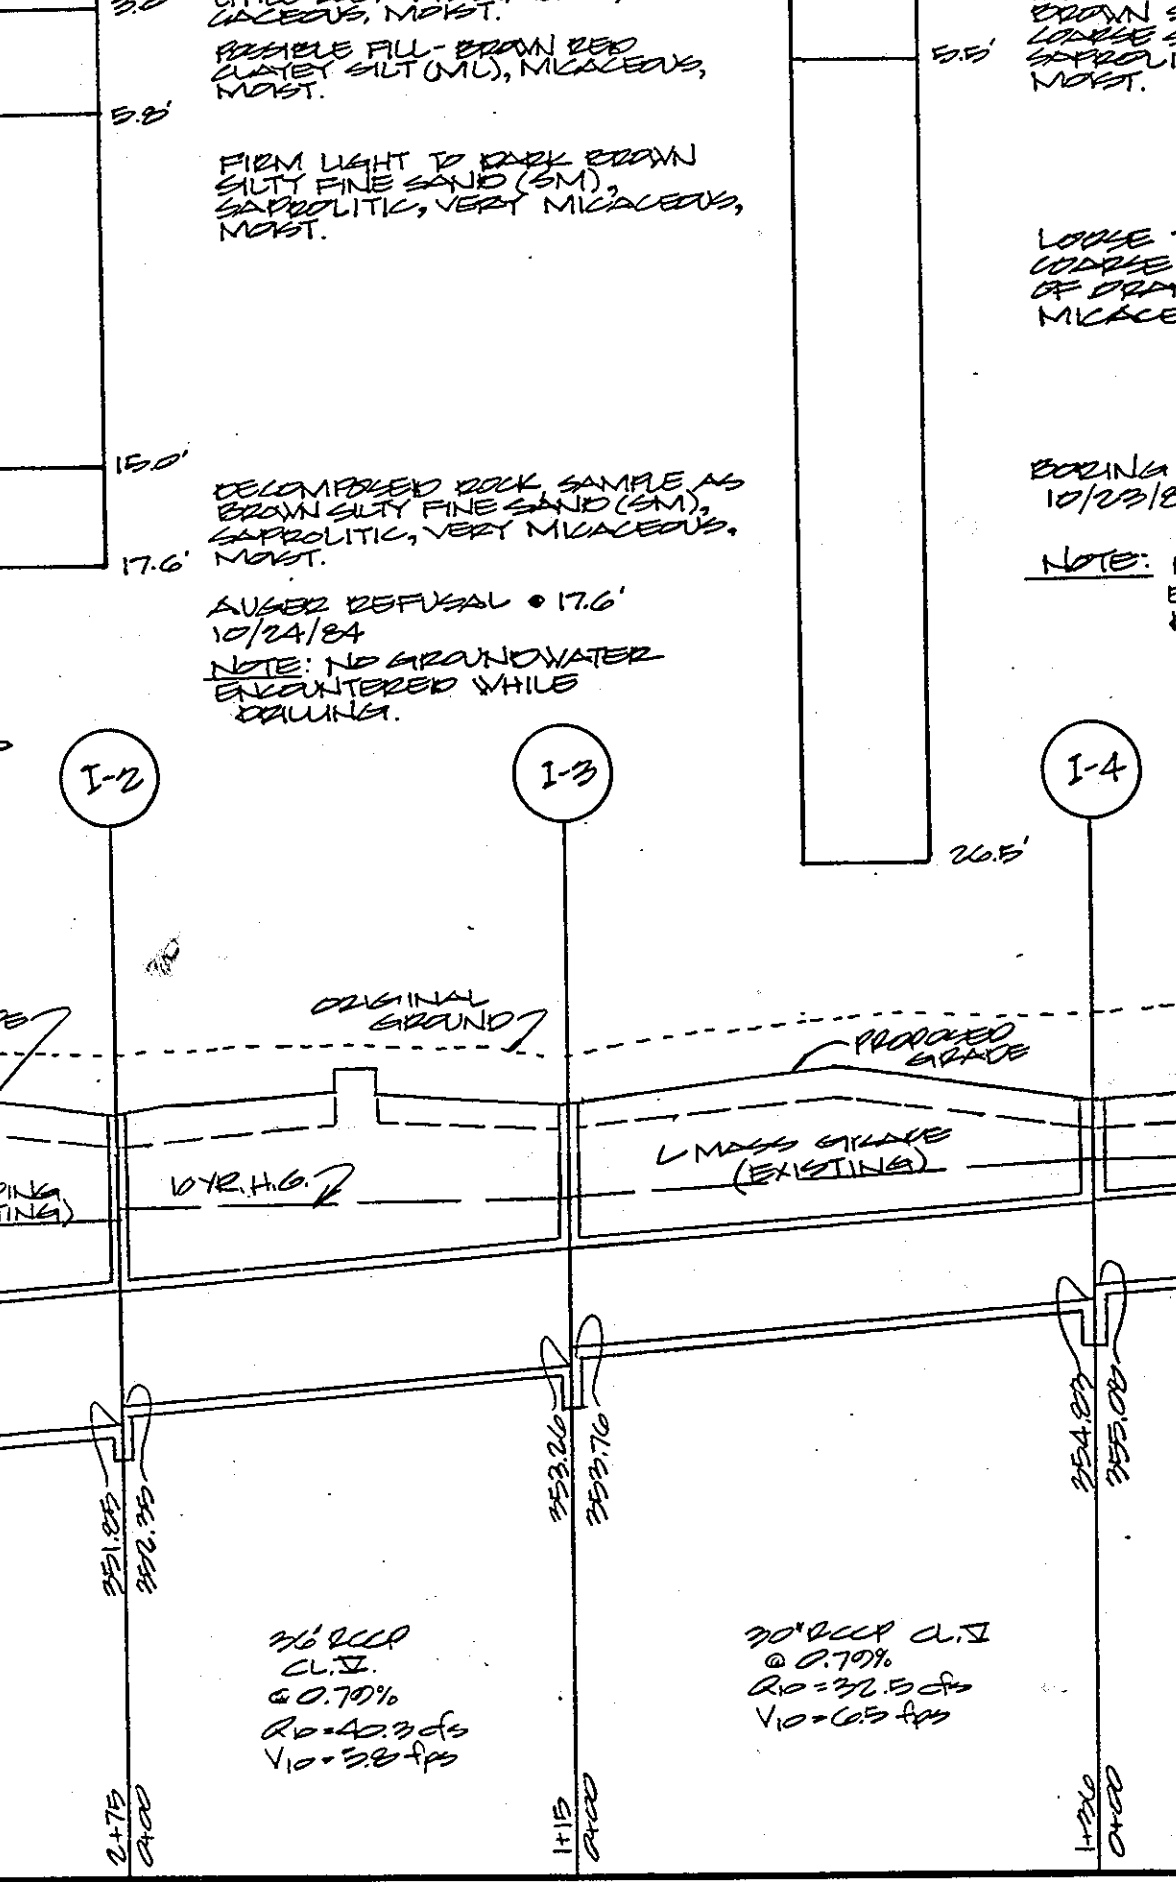 3.0'
GACEOUS, MOIST.
POSSIBLE FILL - BROWN RED
CLAYEY SILT (ML), MICACEOUS,
MOIST.
5.8'
FIRM LIGHT TO DARK BROWN
SILTY FINE SAND (SM),
SAPROLITIC, VERY MICACEOUS,
MOIST.
15.0'
DECOMPOSED ROCK SAMPLE AS
BROWN SILTY FINE SAND (SM),
SAPROLITIC, VERY MICACEOUS,
MOIST.
17.6'
AUGER REFUSAL @ 17.6'
10/24/84
NOTE: NO GROUNDWATER
ENCOUNTERED WHILE
DRILLING.
5.5'
BROWN S
COARSE S
SAPROLIT
MOIST.
LOOSE
COARSE
OF
MICACE
BORING
10/23/8
NOTE:
26.5'
I-2
I-3
I-4
ORIGINAL
GROUND
PROPOSED
GRADE
10 YR. H.G.
MASS GRADE
(EXISTING)
PING
TING)
351.85
352.35
353.26
353.76
354.83
355.08
36" RCCP
CL. V.
@ 0.79%
Q10 = 40.3 cfs
V10 = 5.8 fps
30" RCCP CL. V
@ 0.79%
Q10 = 32.5 cfs
V10 = 6.5 fps
2+75
0+00
1+15
0+00
1+36
0+00